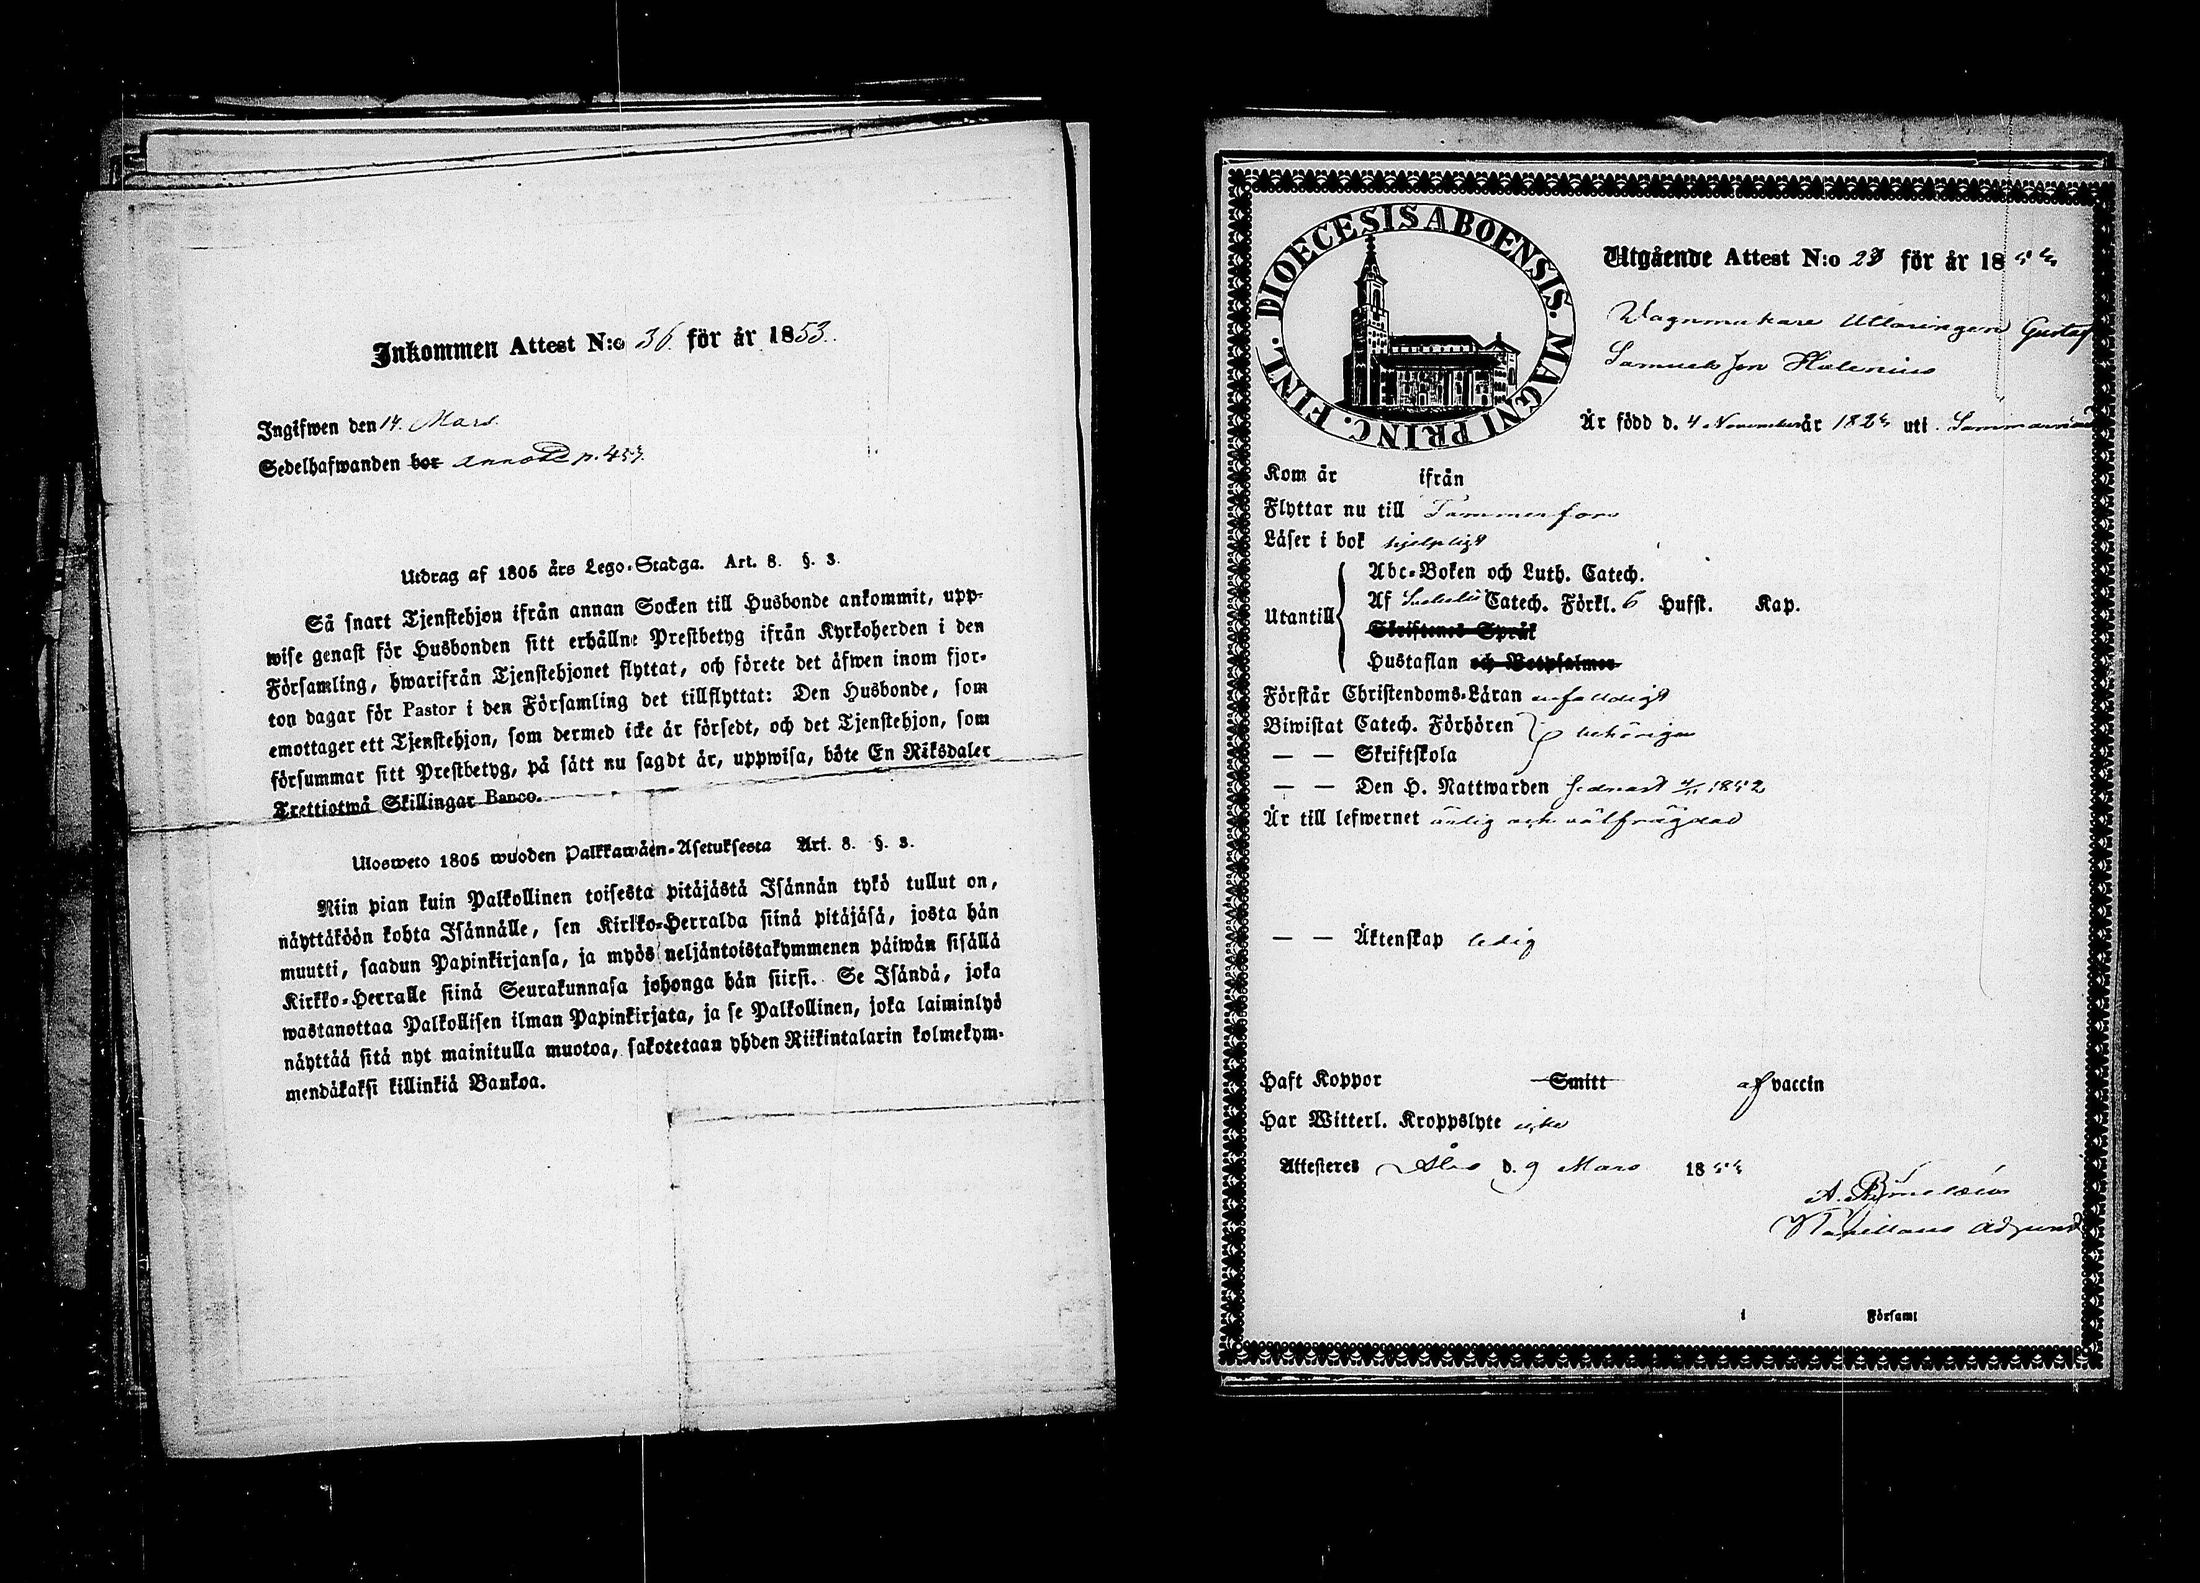 Inkommen Attest N:o 36 för år 1853.
Ingifwen den 14. Mars.
Sedelhafwanden bor p. 453.
Utdrag af 1805 års Lego-Stadga. Art. 8. §. 3.
Så snart Tjenstehjon ifrån annan Socken till Husbonde ankommit, upp-
wise genast för Husbonden sitt erhållne Prestbetyg ifrån Kyrkoherden i den
Församling, hwarifrån Tjenstehjonet flyttat, och förete det äfwen inom fjor-
ton dagar för Pastor i den Församling det tillflyttat: Den Husbonde, som
emottager ett Tjenstehjon, som dermed icke är försedt, och det Tjenstehjon, som
försummar sitt Prestbetyg, på sätt nu sagdt är, uppwisa, böte En Riksdaler
Trettiotwå Skillingar Banco.
Ulosweto 1805 wuoden Palkkawäen-Asetuksesta Art. 8. §. 3.
Niin pian kuin Palkollinen toisesta pitäjästä Isännän tykö tullut on,
näyttäköön kohta Isännälle, sen Kirkko-Herralda siinä pitäjäsä, josta hän
muutti, saadun Papinkirjansa, ja myös neljäntoistakymmenen päiwän sisällä
Kirkko-Herralle siinä Seurakunnasa johonga hän siirsi. Se Isändä, joka
wastanottaa Palkollisen ilman Papinkirjata, ja se Palkollinen, joka laiminlyö
näyttää sitä nyt mainitulla muotoa, sakotetaan yhden Riikintalarin kolmekym-
mendäkaksi killinkiä Bankoa.
DIOECESIS ABOENSIS. MAGNI PRINC. FINL.
Utgående Attest N:o 23 för år 1853
Wagnmakare Utläringen Gustaf
Samuelsson Helenius
Är född d. 4 November år 1823 uti
Kom år ifrån
Flyttar nu till Tammerfors
Läser i bok hjelpligt
Utantill
Abc-Boken och Luth. Catech.
Af Catech. Förkl. 6 Hufst. Kap.
Skriftenes Språk
Hustaflan och Botpsalmer
Förstår Christendoms-Läran enfaldigt
Biwistat Catech. Förhören behörigen
— — Skriftskola
— — Den H. Nattwarden sednast 1852
Är till lefwernet ärlig och välfrägdad
— — Äktenskap ledig
Haft Koppor Smitt af vaccin
Har Witterl. Kroppslyte icke
Attesteres Åbo d. 9 Mars 1853
A.
Kapellans Adjunct
i Församl